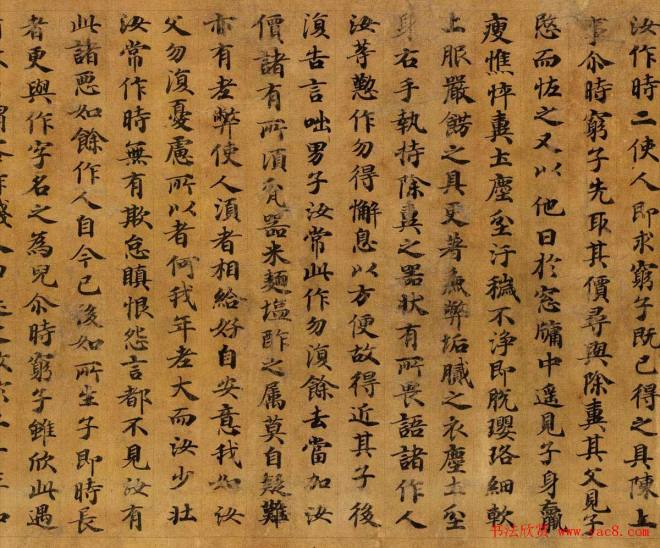 汝作時二使人即求窮子既已得之具陳上
事尒時窮子先取其價尋與除糞其父見子
愍而怪之又以他日於窓牖中遥見子身羸
瘦憔悴糞土塵坌汙穢不淨即脫瓔珞細軟
上服嚴餝之具更著麁弊垢膩之衣塵土坌
身右手執持除糞之器狀有所畏語諸作人
汝等懃作勿得懈息以方便故得近其子後
復告言咄男子汝常此作勿復餘去當加汝
價諸有所湏瓫器米麵塩酢之属莫自疑難
亦有老弊使人湏者相給好自安意我如汝
父勿復憂慮所以者何我年老大而汝少壯
汝常作時無有欺怠瞋恨怨言都不見汝有
此諸惡如餘作人自今已後如所生子即時長
者更與作字名之為兒尒時窮子雖欣此遇
书法欣赏 www.yac8.com